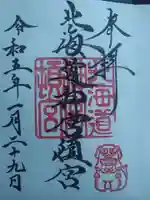 奉拝
北海道神宮頓宮
令和五年一月二十九日
北海道
神宮
頓宮